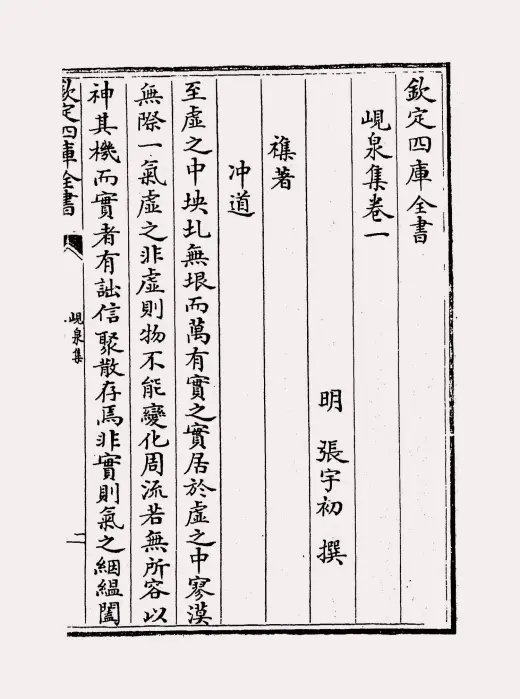 欽定四庫全書
峴泉集卷一
明 張宇初 撰
襍著
冲道
至虛之中坱圠無垠而萬有實之實居於虛之中寥漠
無際一氣虛之非虛則物不能變化周流若無所容以
神其機而實者有詘信聚散存焉非實則氣之絪緼闔
欽定四庫全書
峴泉集
二